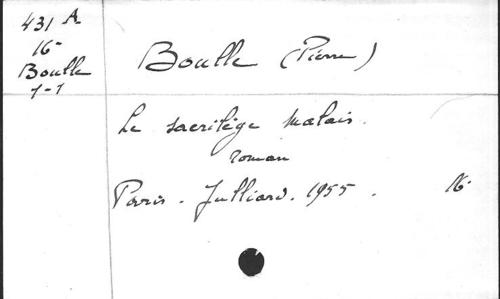 431 A
16°
Boulle
7-7
Boulle (Pierre)
Le sacrilège malais.
roman
Paris. Julliard. 1955. 16°